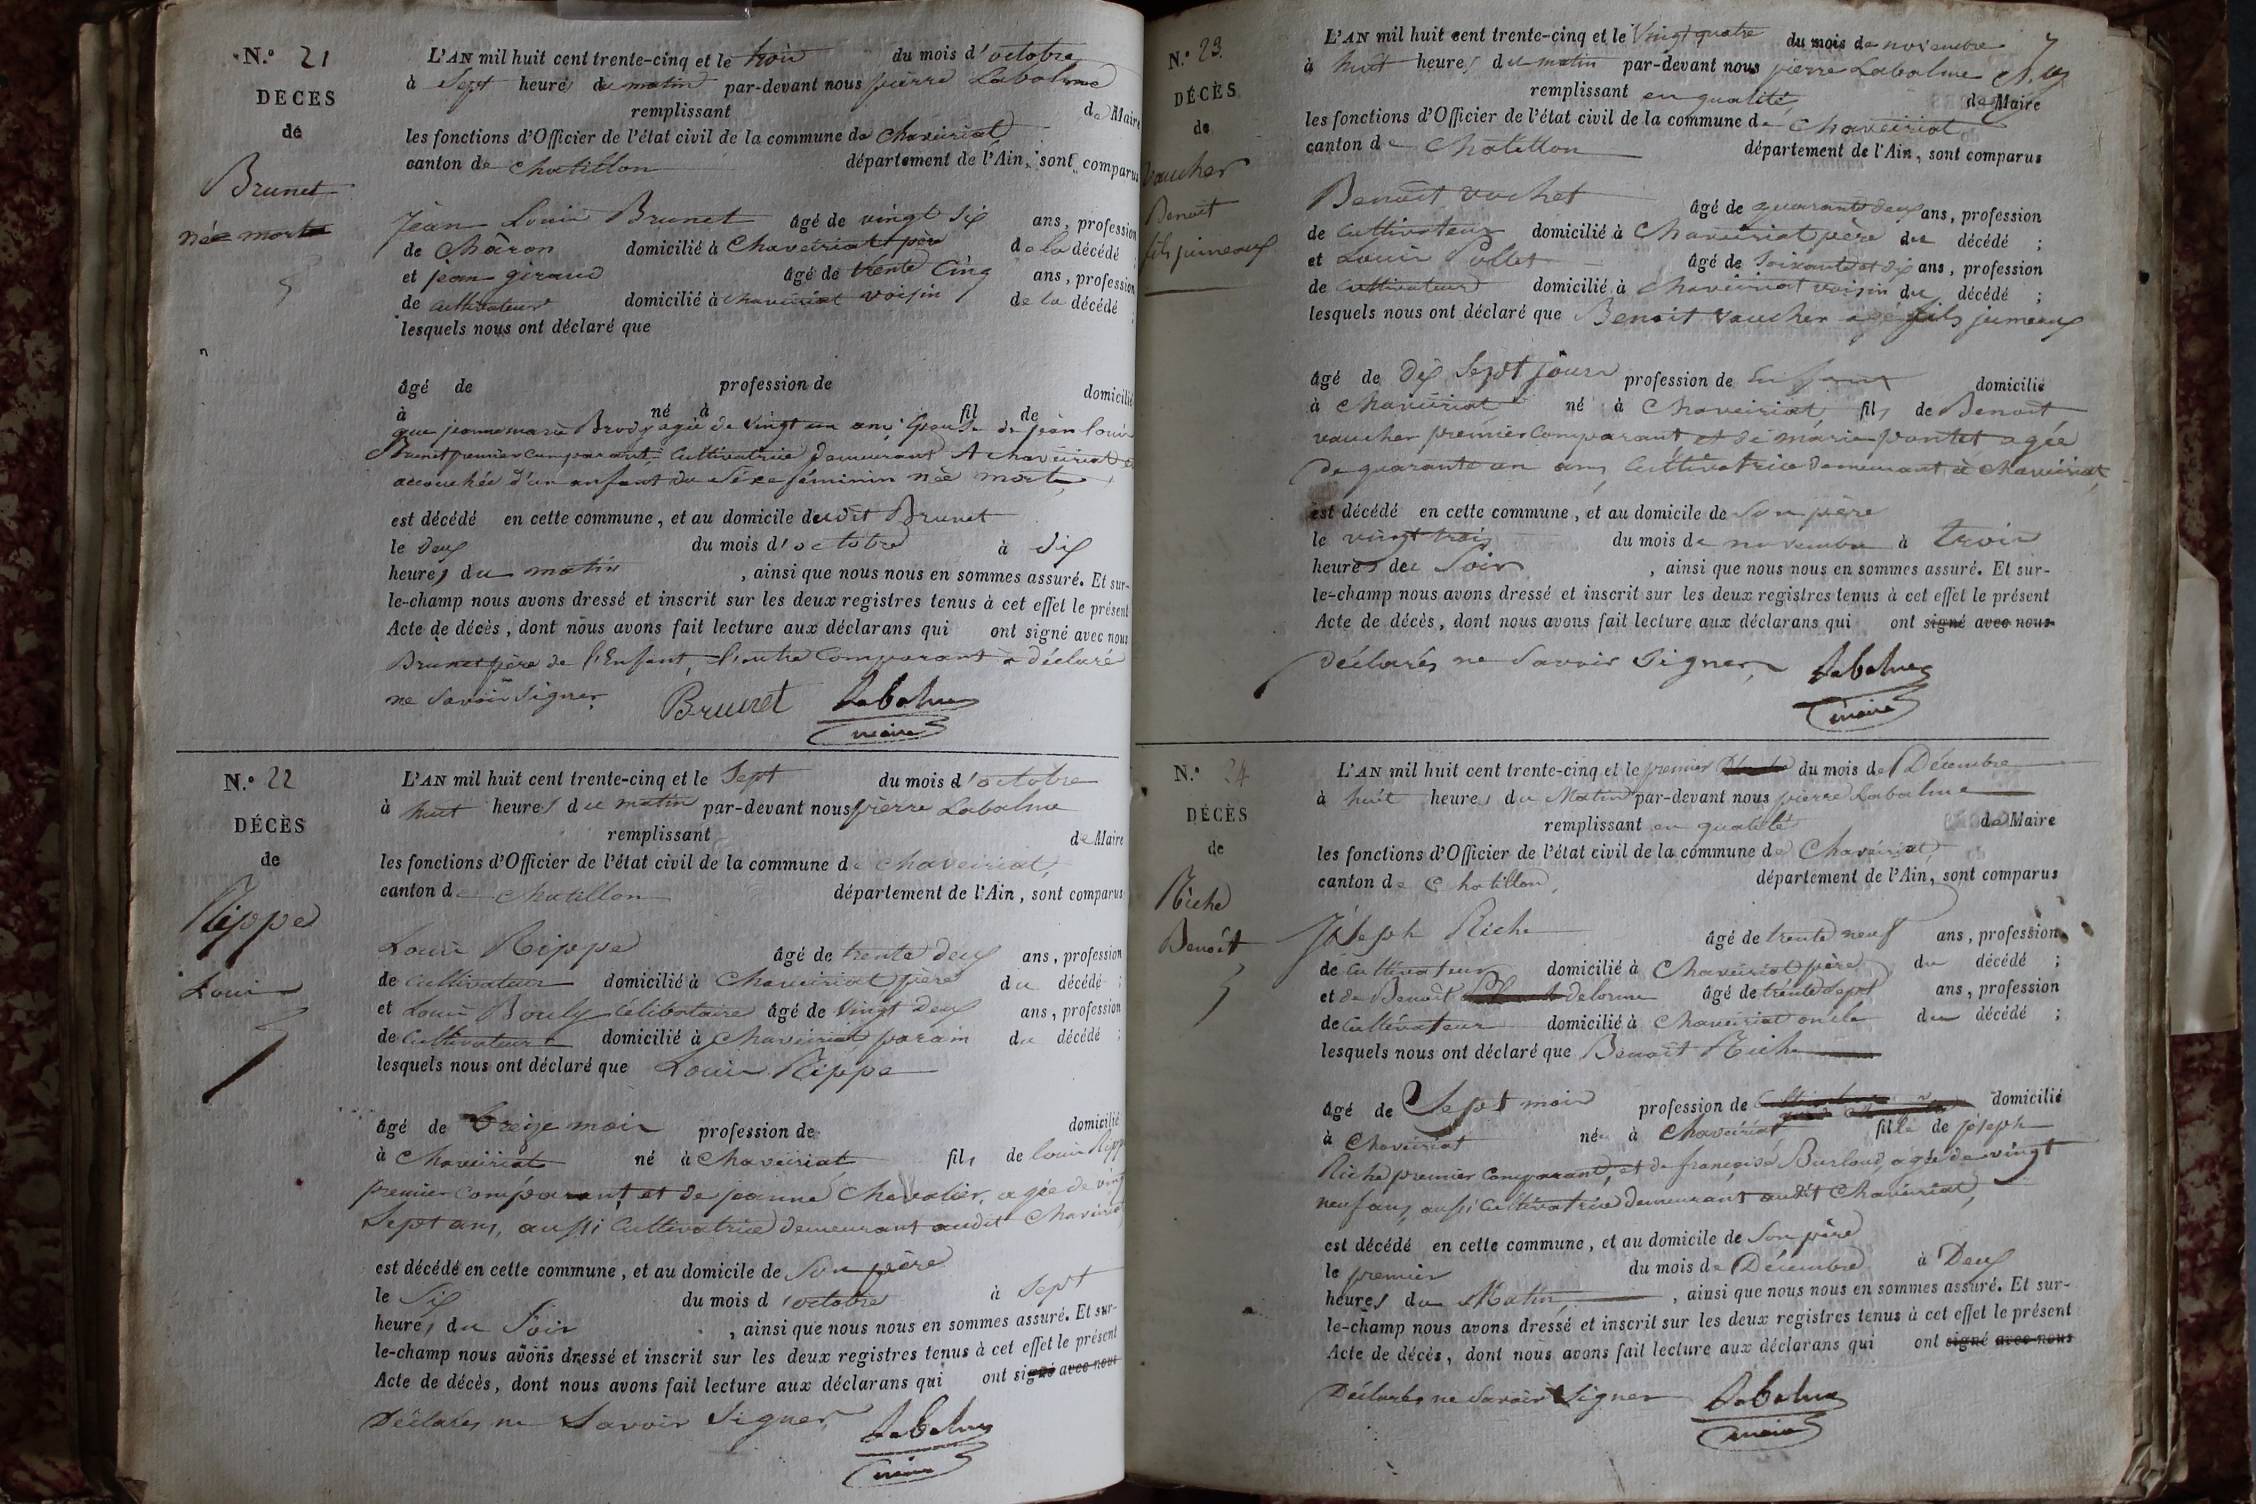 N.° 21
DECES
de
Brunet
née morte
L'AN mil huit cent trente-cinq et le trois du mois d'octobre
à Sept heures du matin par-devant nous pierre Labalme
remplissant de Maire
les fonctions d'Officier de l'état civil de la commune de Chaveiriat
canton de Chatillon département de l'Ain, sont comparus
Jean Louis Brunet âgé de vingt six ans, profession
de Châron domicilié à Chaveiriat père de la décédé ;
et jean giraud âgé de trente Cinq ans, profession
de Cultivateur domicilié à Chaveiriat voisin de la décédé ;
lesquels nous ont déclaré que
âgé de profession de domicilié
à né à fil de
que jeanne marie Brody agée de vingt un ans Epouse de jean louis
Brunet premier Comparant, Cultivatrice Demeurant A chaveiriat
accouchée d'un enfant du Séxe féminin née morte
est décédé en cette commune, et au domicile dudit Brunet
le deux du mois d'octobre à dix
heures du matin, ainsi que nous nous en sommes assuré. Et sur-
le-champ nous avons dressé et inscrit sur les deux registres tenus à cet effet le présent
Acte de décès, dont nous avons fait lecture aux déclarans qui ont signé avec nous
Brunet père de l'Enfant, l'autre Comparant a déclaré
ne Savoir Signer. Brunet Labalme
maire
N.° 22
DÉCÈS
de
Rippe
Louis
L'AN mil huit cent trente-cinq et le Sept du mois d'octobre
à huit heures du matin par-devant nous pierre Labalme
remplissant de Maire
les fonctions d'Officier de l'état civil de la commune de Chaveiriat,
canton de Chatillon département de l'Ain, sont comparus
Louis Rippe âgé de trente deux ans, profession
de Cultivateur domicilié à Chaveiriat père du décédé ;
et Louis Bouly Célibataire âgé de Vingt Deux ans, profession
de Cultivateur domicilié à Chaveiriat parain du décédé ;
lesquels nous ont déclaré que Louis Rippe
âgé de treize mois profession de domicilié
à Chaveiriat né à Chaveiriat fils de louis Rippe
premier comparant, et de jeanne Chevalier, agée de vingt
Sept ans, aussi Cultivatrice demeurant audit Chaveiriat
est décédé en cette commune, et au domicile de Son père
le Six du mois d'octobre à Sept
heures du Soir, ainsi que nous nous en sommes assuré. Et sur-
le-champ nous avons dressé et inscrit sur les deux registres tenus à cet effet le présent
Acte de décès, dont nous avons fait lecture aux déclarans qui ont signé avec nous
Déclarés ne Savoir Signer Labalme
maire
N.° 23
DÉCÈS
de
Vaucher
Benoit
fils jumeaux
L'AN mil huit cent trente-cinq et le Vingt quatre du mois de novembre
à huit heures du matin par-devant nous pierre Labalme
remplissant en qualité de Maire
les fonctions d'Officier de l'état civil de la commune de Chaveiriat
canton de Chatillon département de l'Ain, sont comparus
Benoit Vochet âgé de quarante deux ans, profession
de Cultivateur domicilié à Chaveiriat père du décédé ;
et Louis Pollet âgé de Soixante et dix ans, profession
de Cultivateur domicilié à Chaveiriat voisin du décédé ;
lesquels nous ont déclaré que Benoit Vaucher fils jumeaux
âgé de Dix Sept jours profession de Enfant domicilié
à Chaveiriat né à Chaveiriat fils de Benoit
vaucher premier Comparant et de marie pontet agée
De quarante un ans, Cultivatrice demeurant à Chaveiriat,
est décédé en cette commune, et au domicile de Son père
le vingt trois du mois de novembre à trois
heures du Soir, ainsi que nous nous en sommes assuré. Et sur-
le-champ nous avons dressé et inscrit sur les deux registres tenus à cet effet le présent
Acte de décès, dont nous avons fait lecture aux déclarans qui ont signé avec nous
Déclarés ne Savoir Signer, Labalme
maire
N.° 24
DÉCÈS
de
Riche
Benoit
L'AN mil huit cent trente-cinq et le premier du mois de Décembre
à huit heures du Matin par-devant nous pierre Labalme
remplissant en qualité de Maire
les fonctions d'Officier de l'état civil de la commune de Chaveiriat,
canton de Chatillon, département de l'Ain, sont comparus
Joseph Riche âgé de trente neuf ans, profession
de Cultivateur domicilié à Chaveiriat père du décédé ;
et de Benoit delorme âgé de trente sept ans, profession
de Cultivateur domicilié à Chaveiriat oncle du décédé ;
lesquels nous ont déclaré que Benoit Riche
âgé de Sept mois profession de domicilié
à Chaveiriat née à Chaveiriat fille de joseph
Riche premier Comparant, et de françoise Burloud, agée de vingt
neuf ans, aussi Cultivatrice Demeurant audit Chaveiriat,
est décédé en cette commune, et au domicile de Son père
le premier du mois de Décembre à Deux
heures du Matin, ainsi que nous nous en sommes assuré. Et sur-
le-champ nous avons dressé et inscrit sur les deux registres tenus à cet effet le présent
Acte de décès, dont nous avons fait lecture aux déclarans qui ont signé avec nous
Déclarés ne Savoir Signer Labalme
maire